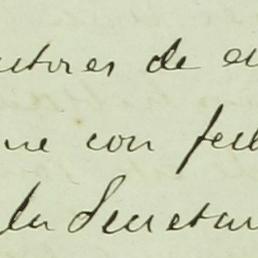 utores de eu
ue con fech
la Secretar